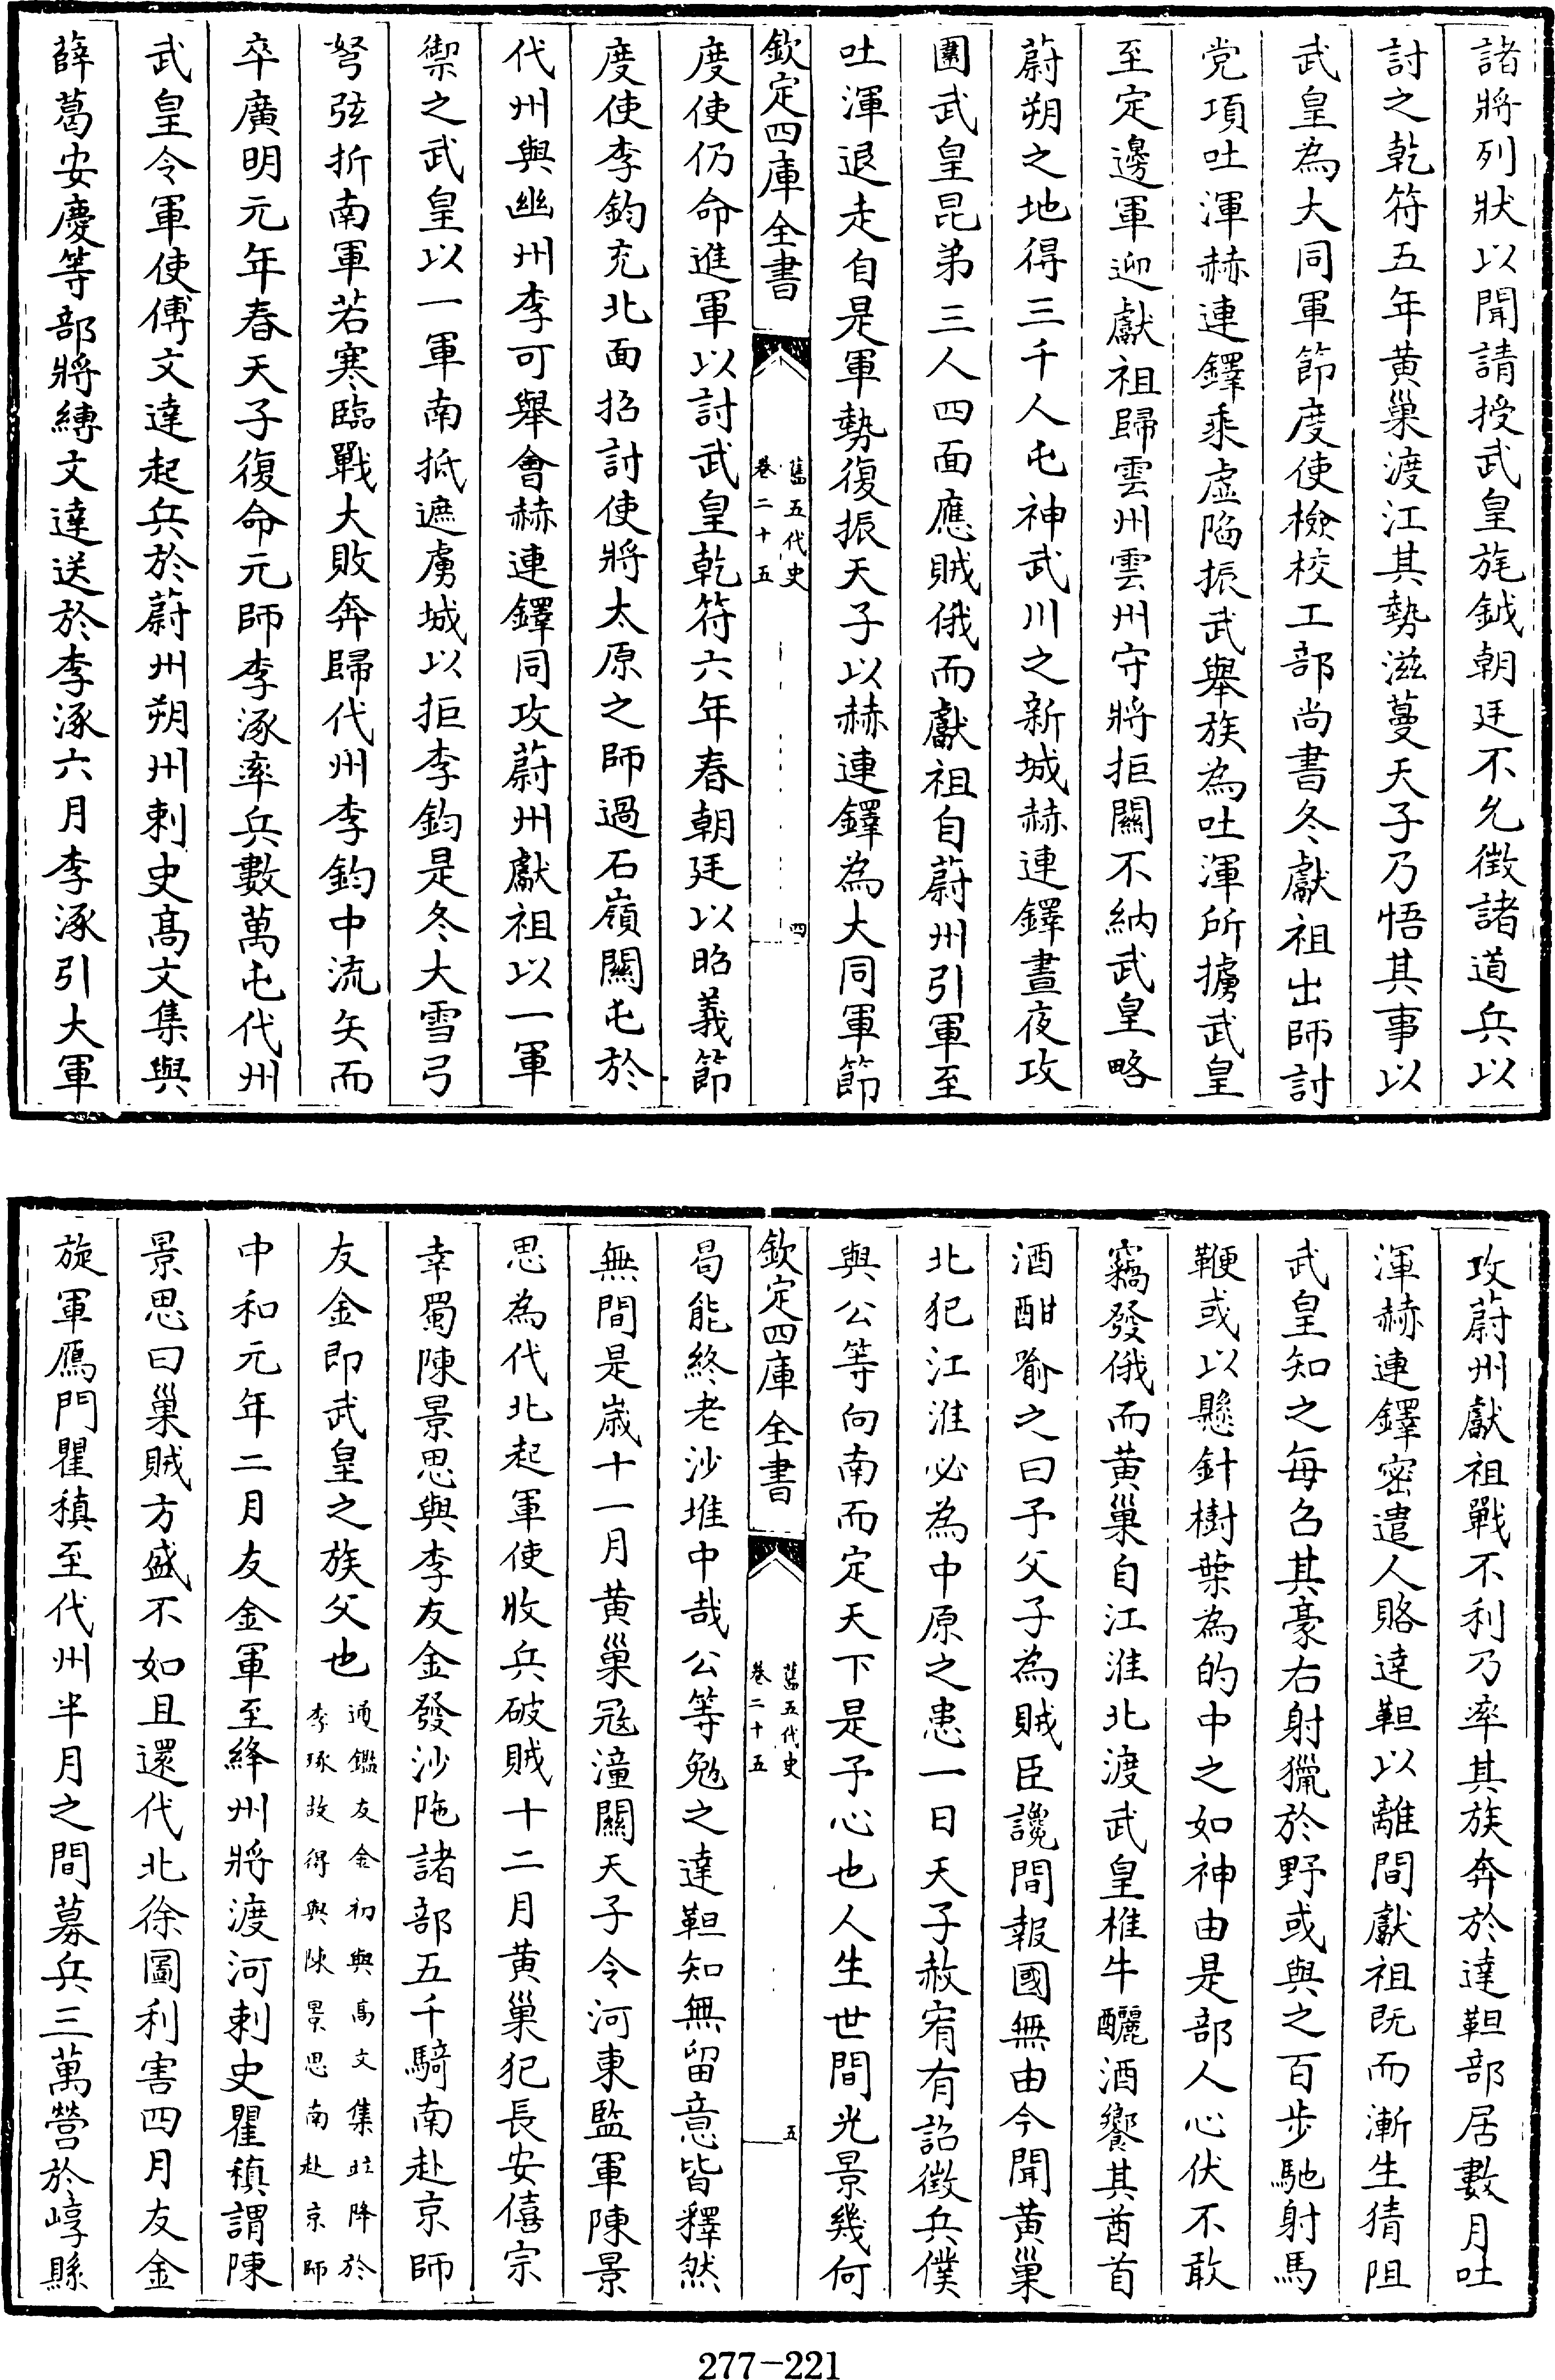 諸將列狀以聞請授武皇旄鉞朝廷不允徵諸道兵以
討之乾符五年黄巢渡江其勢滋蔓天子乃悟其事以
武皇為大同軍節度使檢校工部尚書冬獻祖出師討
党項吐渾赫連鐸乘虛陷振武舉族為吐渾所擄武皇
至定邊軍迎獻祖歸雲州雲州守將拒關不納武皇略
蔚朔之地得三千人屯神武川之新城赫連鐸晝夜攻
圍武皇昆弟三人四面應賊俄而獻祖自蔚州引軍至
吐渾退走自是軍勢復振天子以赫連鐸為大同軍節
欽定四庫全書
舊五代史
卷二十五
四
度使仍命進軍以討武皇乾符六年春朝廷以昭義節
度使李鈞充北面招討使將太原之師過石嶺關屯於
代州與幽州李可舉會赫連鐸同攻蔚州獻祖以一軍
禦之武皇以一軍南抵遮虜城以拒李鈞是冬大雪弓
弩弦折南軍若寒臨戰大敗奔歸代州李鈞中流矢而
卒廣明元年春天子復命元師李涿率兵數萬屯代州
武皇令軍使傅文達起兵於蔚州朔州刺史高文集與
薛葛安慶等部將縛文達送於李涿六月李涿引大軍
攻蔚州獻祖戰不利乃率其族奔於達靼部居數月吐
渾赫連鐸密遣人賂達靼以離間獻祖既而漸生猜阻
武皇知之每召其豪右射獵於野或與之百步馳射馬
鞭或以懸針樹葉為的中之如神由是部人心伏不敢
竊發俄而黄巢自江淮北渡武皇椎牛釃酒饗其酋首
酒酣喻之曰予父子為賊臣讒間報國無由今聞黄巢
北犯江淮必為中原之患一日天子赦宥有詔徵兵僕
與公等向南而定天下是予心也人生世間光景幾何
欽定四庫全書
舊五代史
卷二十五
五
曷能終老沙堆中哉公等勉之達靼知無留意皆釋然
無間是嵗十一月黄巢冦潼關天子令河東監軍陳景
思為代北起軍使收兵破賊十二月黄巢犯長安僖宗
幸蜀陳景思與李友金發沙陁諸部五千騎南赴京師
友金即武皇之族父也通鑑友金初與高文集竝降於
李琢故得與陳景思南赴京師
中和元年二月友金軍至絳州將渡河刺史瞿稹謂陳
景思曰巢賊方盛不如且還代北徐圖利害四月友金
旋軍鴈門瞿稹至代州半月之間募兵三萬營於崞縣
277-221